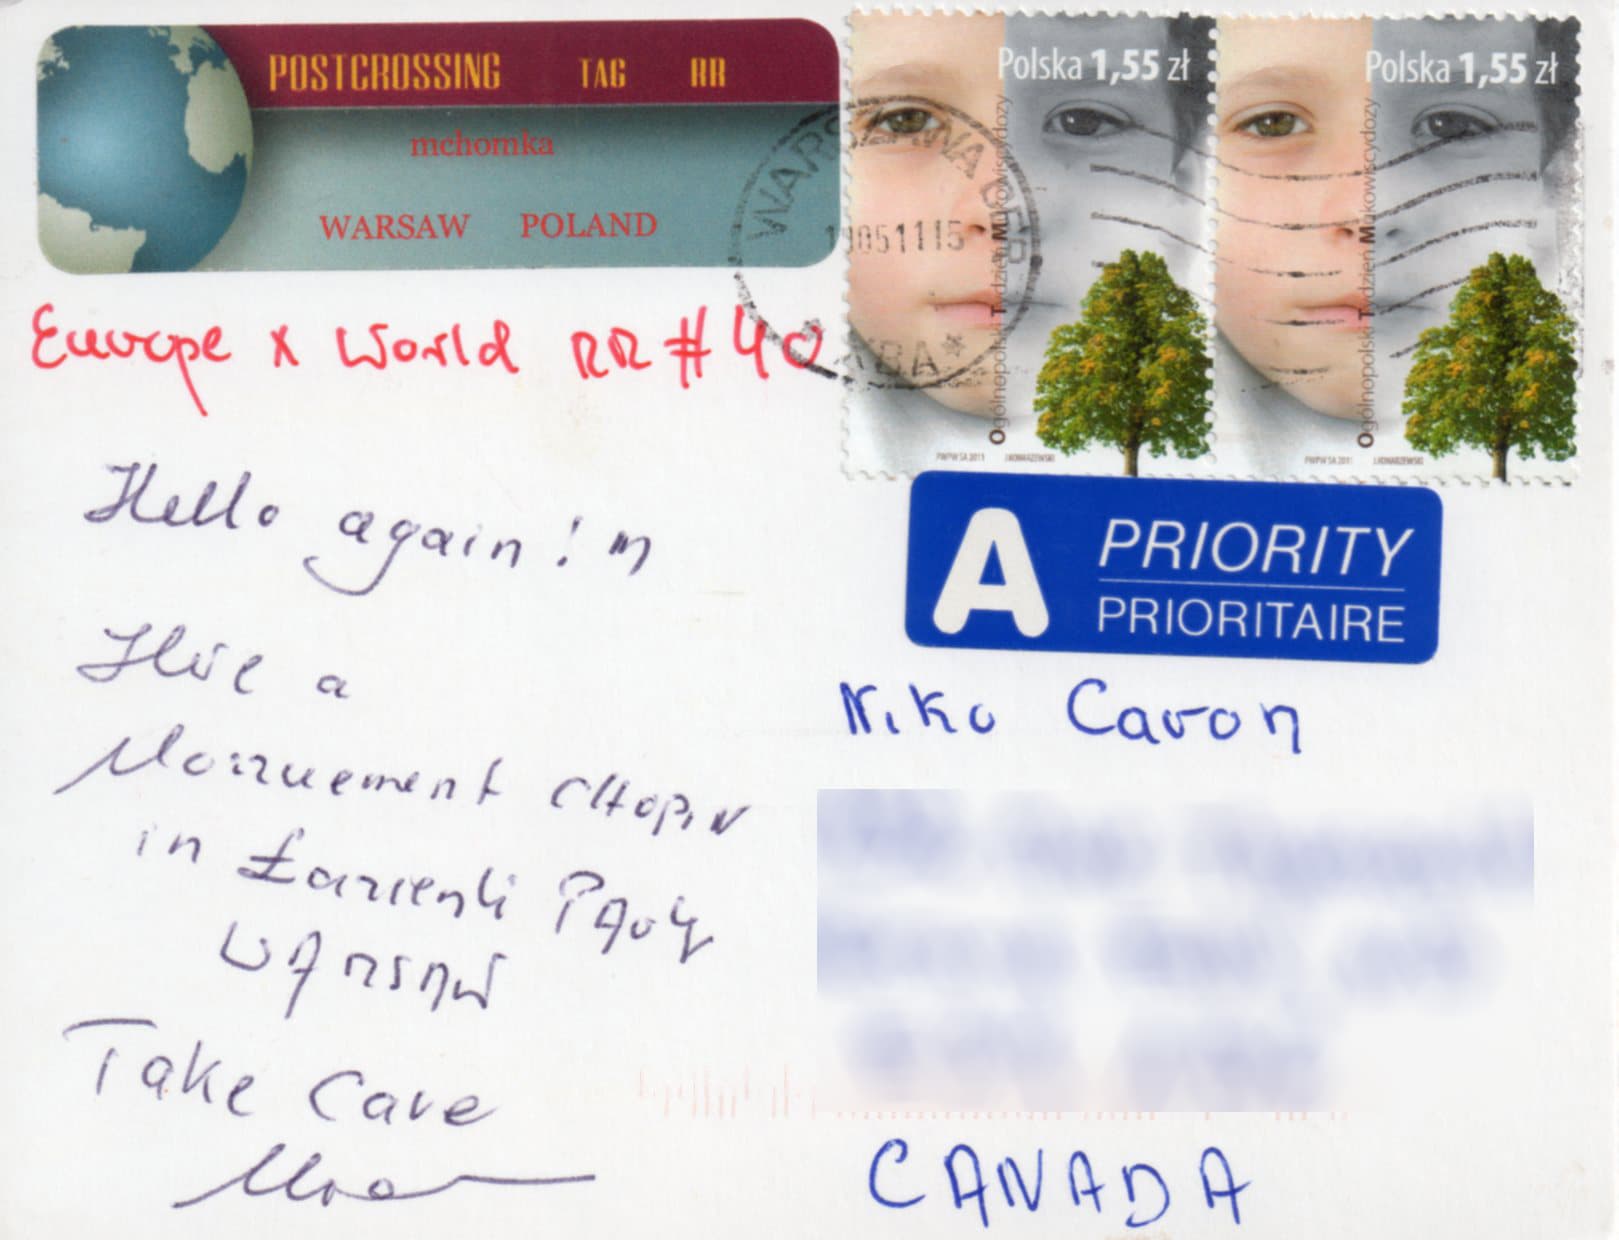 POSTCROSSING TAG RR
mchomka
WARSAW POLAND
Europe x World RR #40
Hello again!
Here a
Monuement CHOPIN
in Łazienki PARK
WARSAW
Take Care
Polska 1,55 zł
Ogólnopolski Tydzień Mukowiscydozy
PWPW SA 2011 J.KONARZEWSKI
Polska 1,55 zł
Ogólnopolski Tydzień Mukowiscydozy
PWPW SA 2011 J.KONARZEWSKI
WARSZAWA
A PRIORITY
PRIORITAIRE
Niko Caron
CANADA